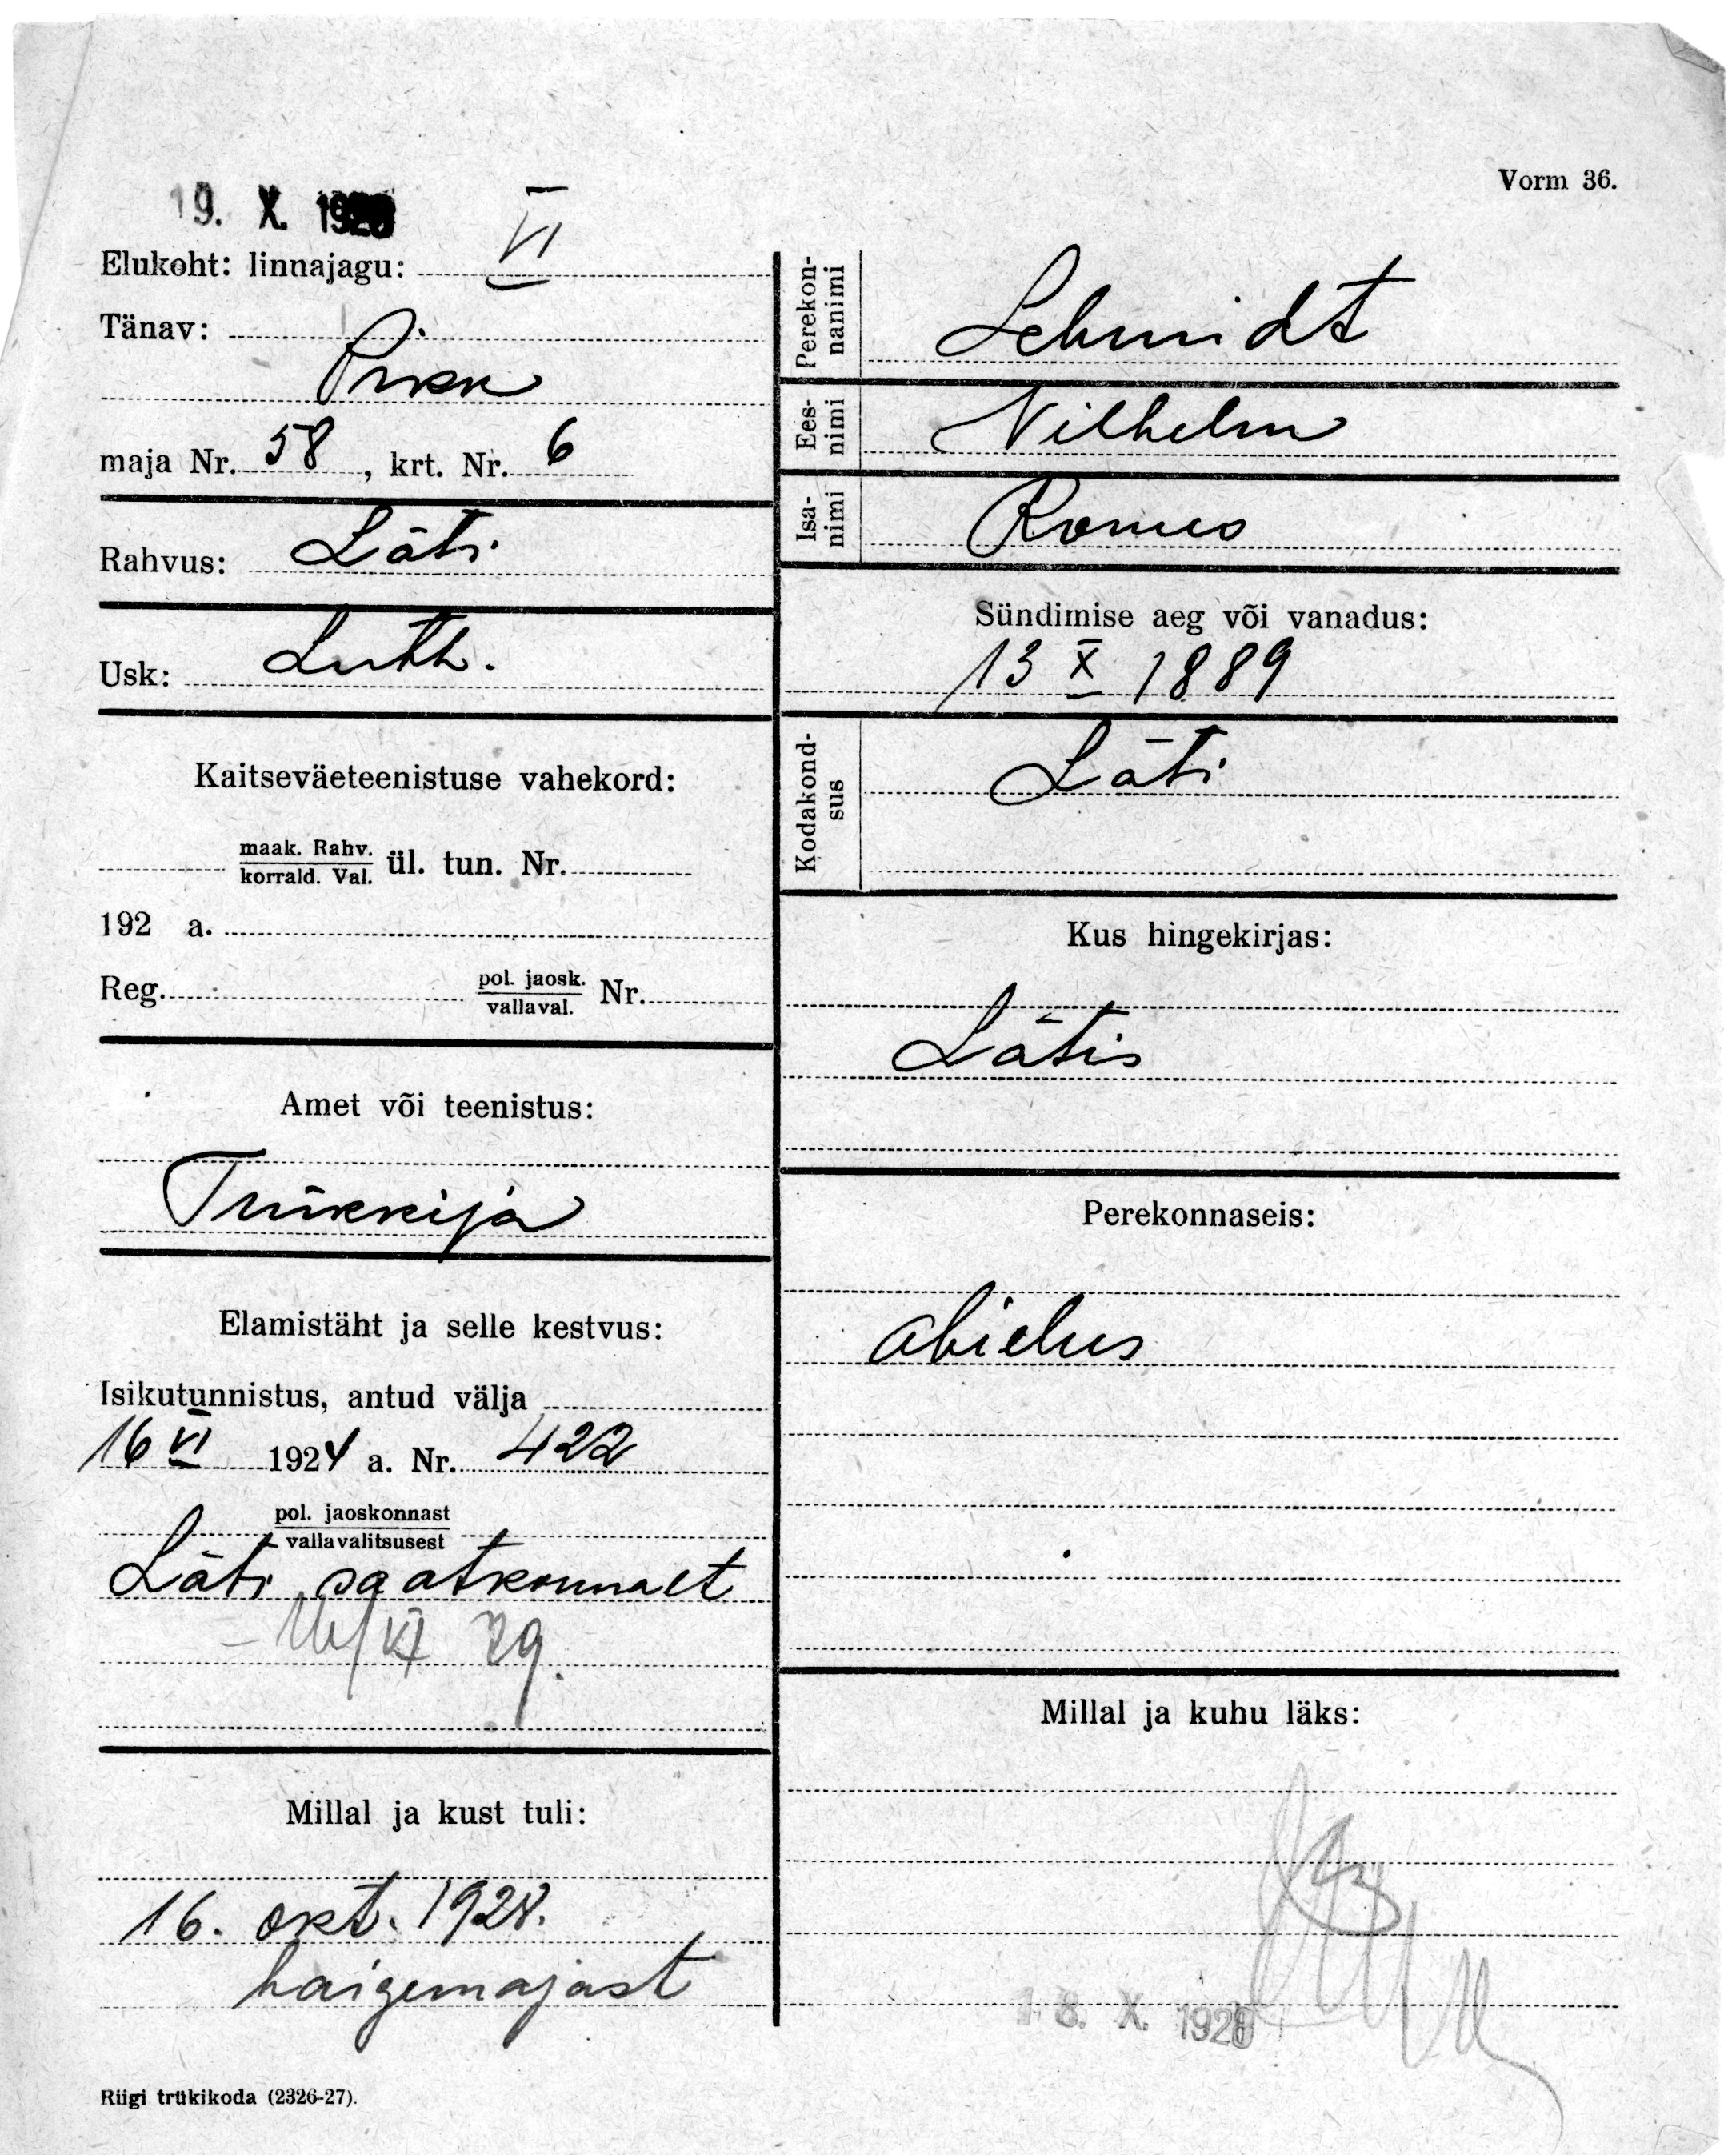 Vorm 36.
19. X. 1928
Elukoht: linnajagu: VI
Tänav:
Pikk
maja Nr. 58, krt. Nr. 6
Rahvus: Läti
Usk: Luth.
Kaitseväeteenistuse vahekord:
maak. Rahv.
korrald. Val. ül. tun. Nr.
192 a.
Reg. pol. jaosk.
vallaval. Nr.
Amet või teenistus:
Trükkija
Elamistäht ja selle kestvus:
Isikutunnistus, antud välja
16 VI 1924 a. Nr. 422
pol. jaoskonnast
vallavalitsusest
Läti saatkonnast
16/VI 29.
Millal ja kust tuli:
16. okt. 1928.
haigemajast
Riigi trükikoda (2326-27).
Perekon-
nanimi
Schmidt
Ees-
nimi
Vilhelm
Isa-
nimi
Romeo
Sündimise aeg või vanadus:
13 X 1889
Kodakond-
sus
Läti
Kus hingekirjas:
Lätis
Perekonnaseis:
abielus
Millal ja kuhu läks:
18. X. 1928